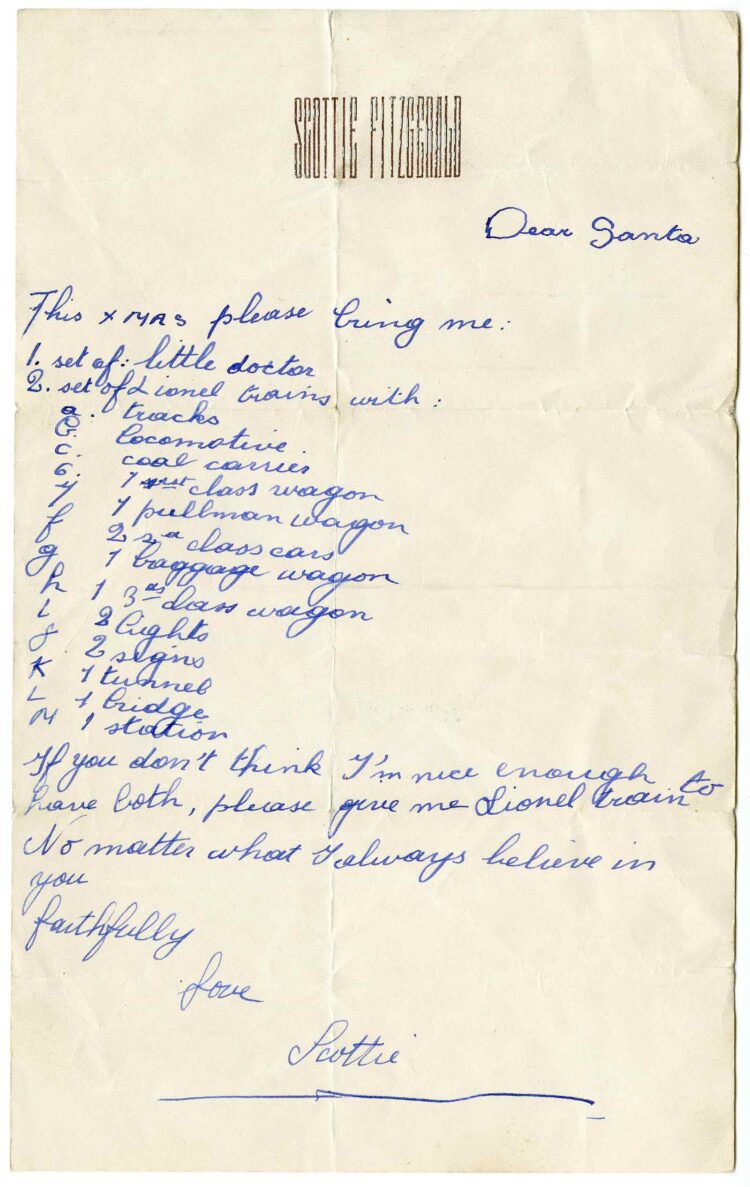 SCOTTIE FITZGERALD
Dear Santa
This XMAS please bring me:
1. set of: little doctor
2. set of Lionel trains with:
a. tracks
b. locomotive.
c. coal carries
1 class wagon
y 1 pullman wagon
f 2 2a class cars
g 1 baggage wagon
h 1 3as class wagon
i 2 lights
j 2 signs
K 1 tunnel
L 1 bridge
M 1 station
If you don't think I'm nice enough to
have both, please give me Lionel train
No matter what I always believe in
you
faithfully
Love
Scottie